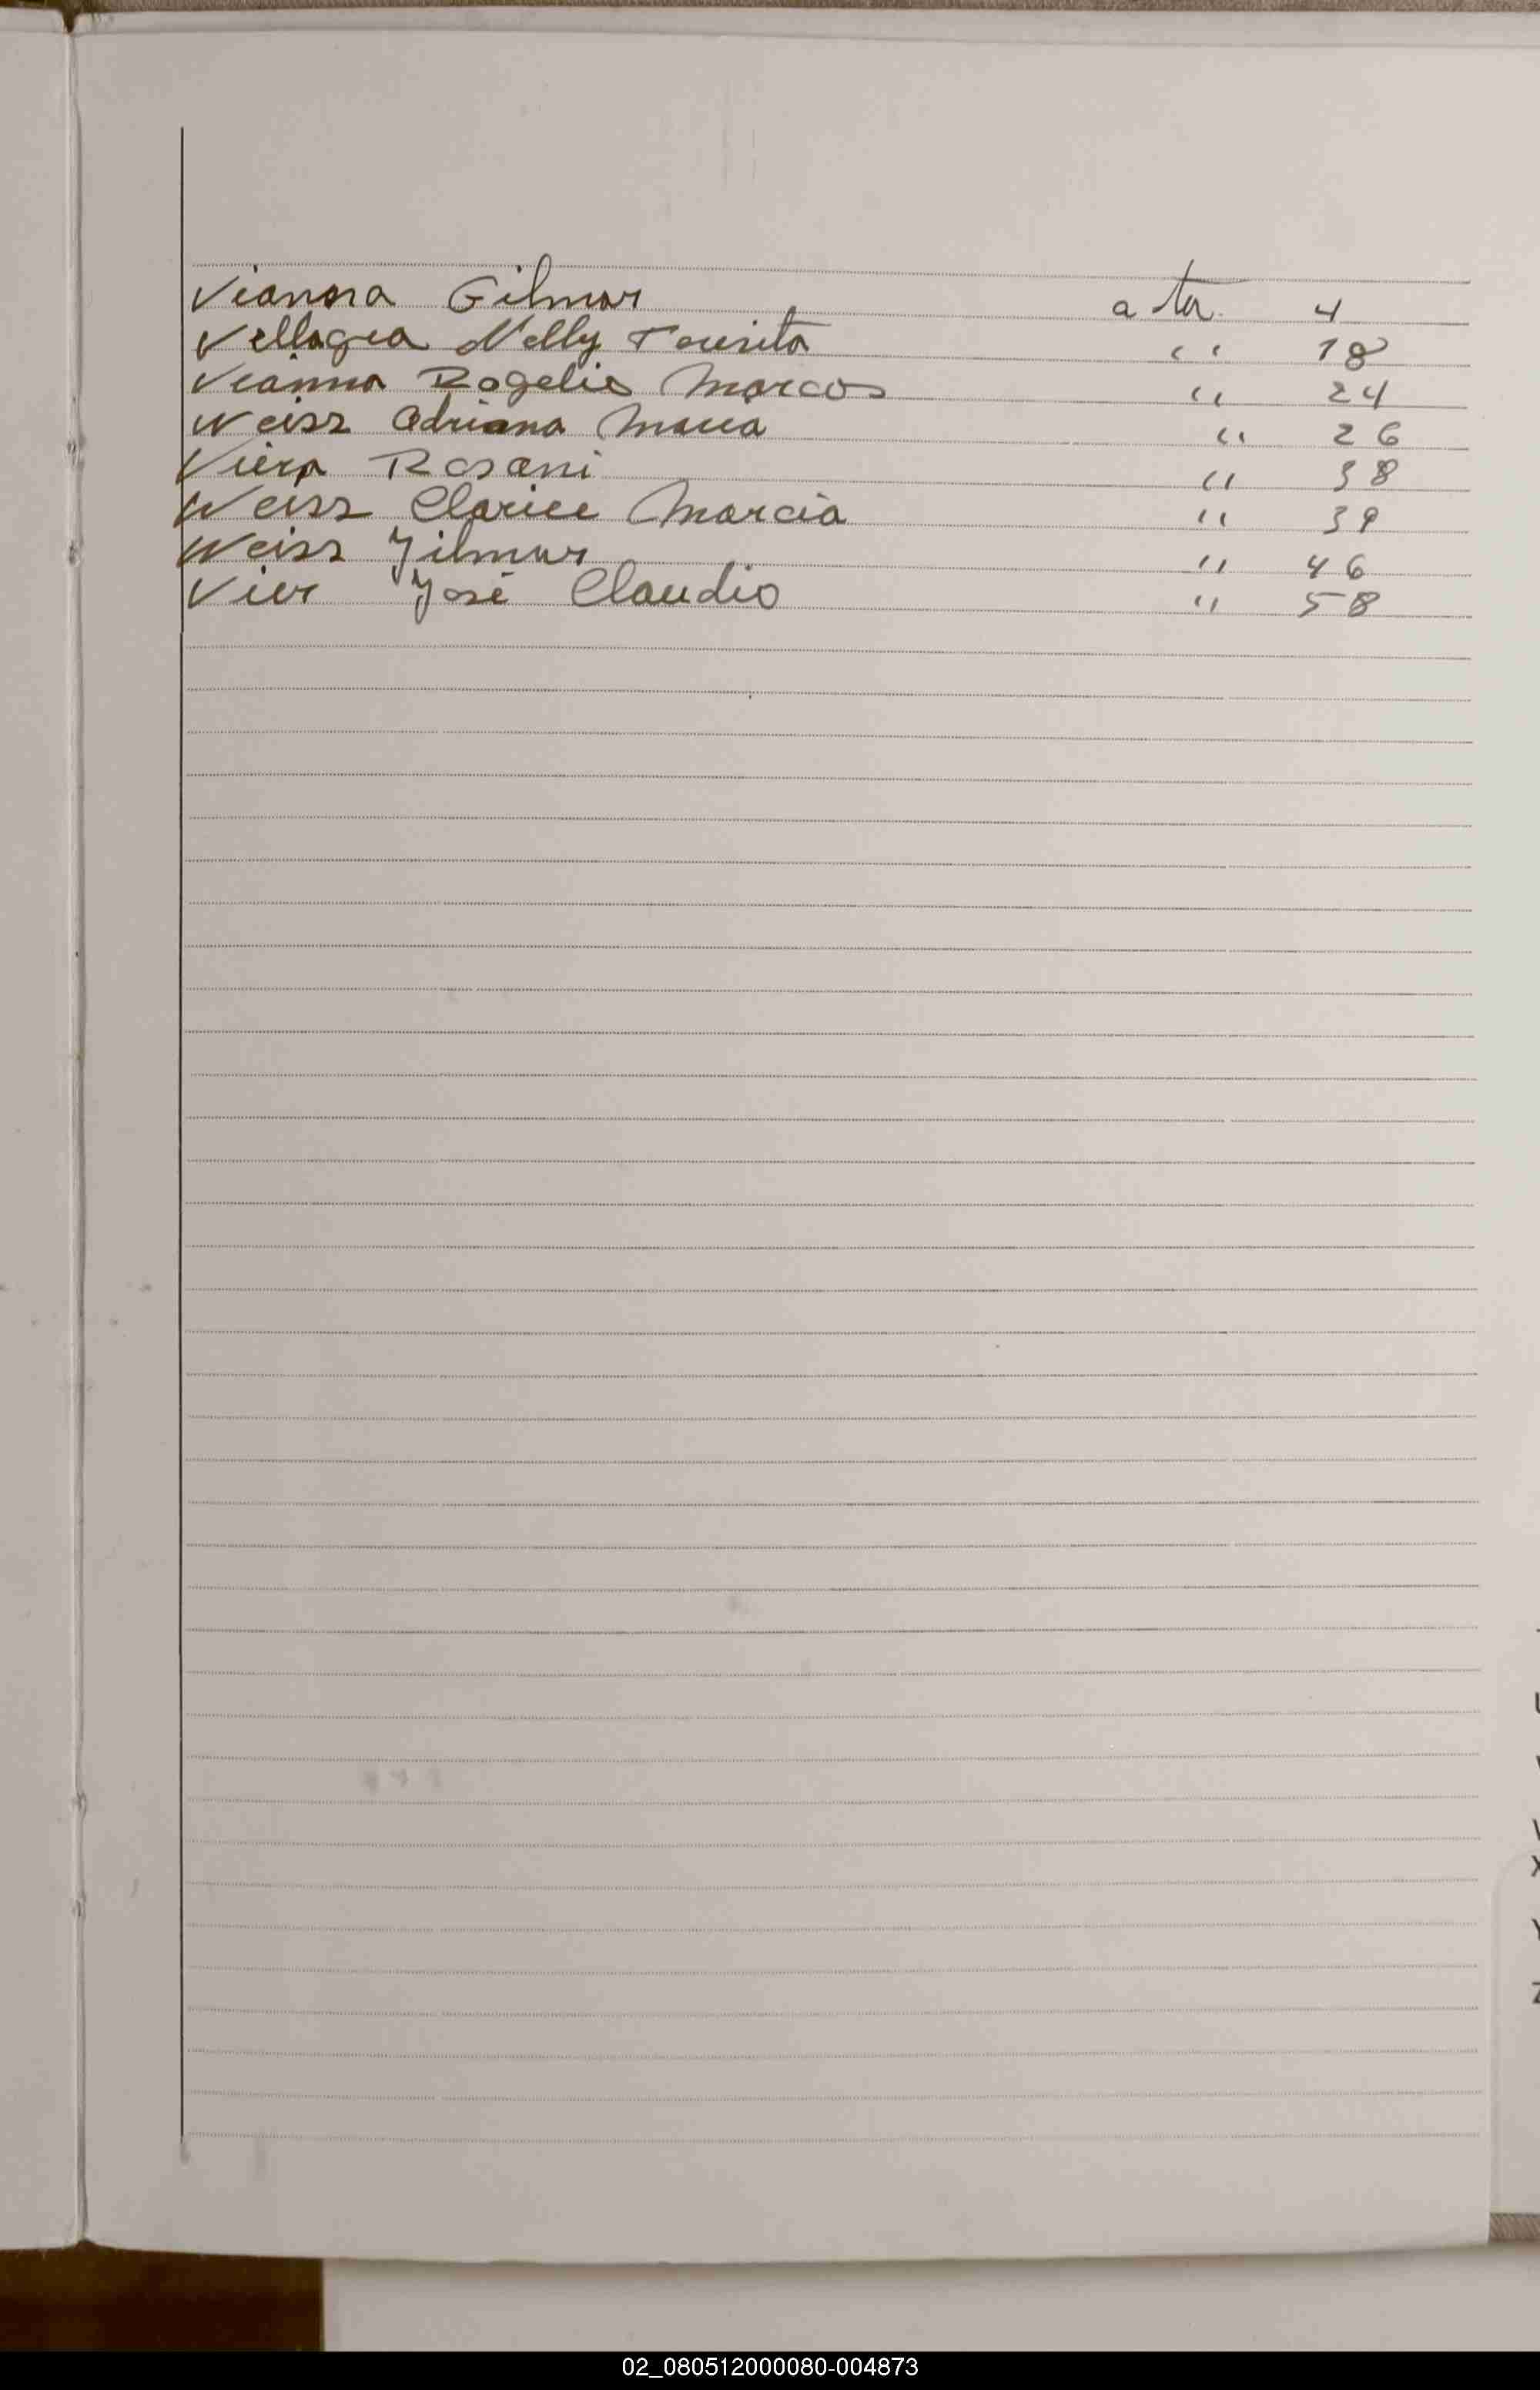 Vianna Gilmar acta 4
Vellagra Nelly " 18
Vianna Rogelio Marcos " 24
Weisz Adriana Maria " 26
Viera Rosani " 38
Weisz Clarice Marcia " 39
Weisz Gilmar " 46
Vier José Claudio " 58
02_080512000080-004873